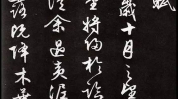 賦
歲十月之望
堂將歸於臨
從余過黃泥
露既降木葉